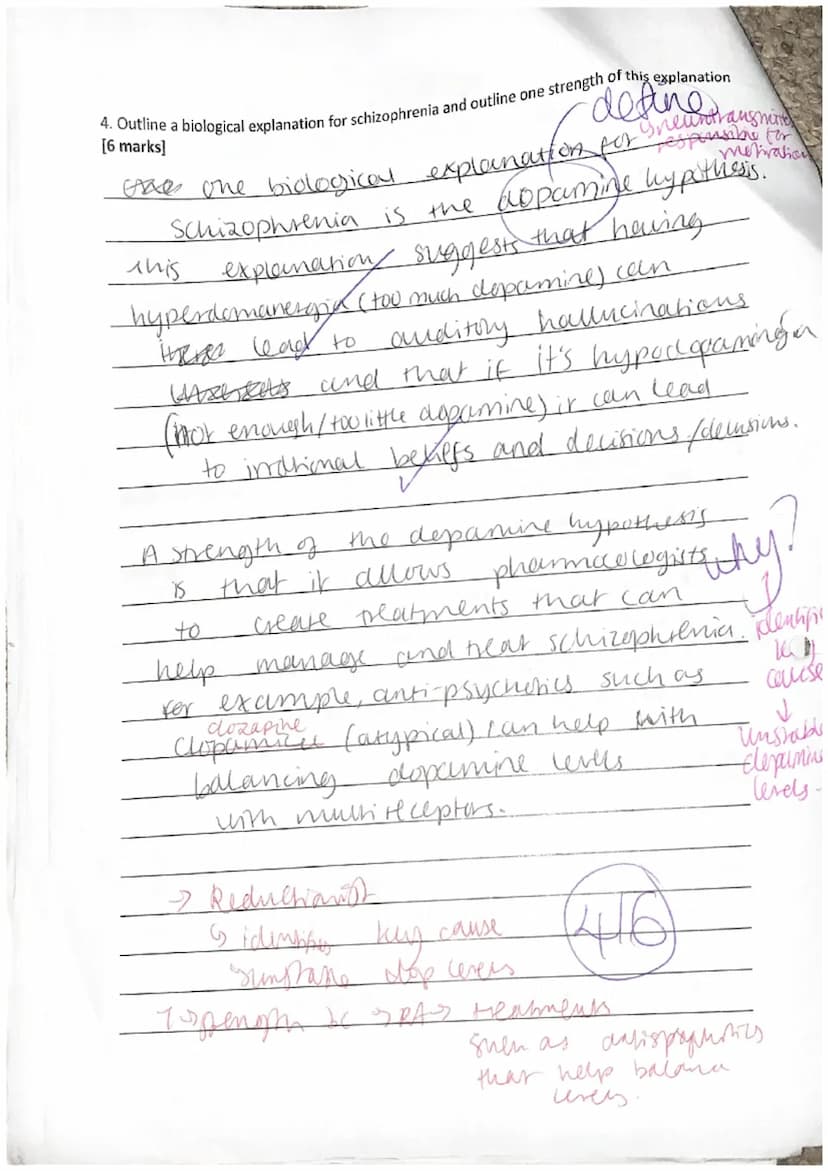 4. Outline a biological explanation for schizophrenia and outline one strength of this explanation
[6 marks]
define
↳ neurotransmitter
responsible for
motivation
one biological explanation for
schizophrenia is the dopamine hypothesis.
This explanation suggests that having
hyperdomanergia (too much dopamine) can
lead to auditory hallucinations
and that if it's hypodopaminergia
(not enough/too little dopamine) it can lead
to irrational beliefs and decisions/delusions.
A strength of the dopamine hypothesis
is that it allows pharmacologists
why?
to create treatments that can
help manage and treat schizophrenia.
identifies
key
cause
↓
unstable
dopamine
levels.
For example, anti-psychotics such as
clozapine
(atypical) can help with
balancing dopamine levels
with multireceptors.
→ Reductionist
↳ identifies key cause
↳ unstable dop levels
4/6
→ strength bc → PA → treatments
such as antispsychotics
that help balance
levels.